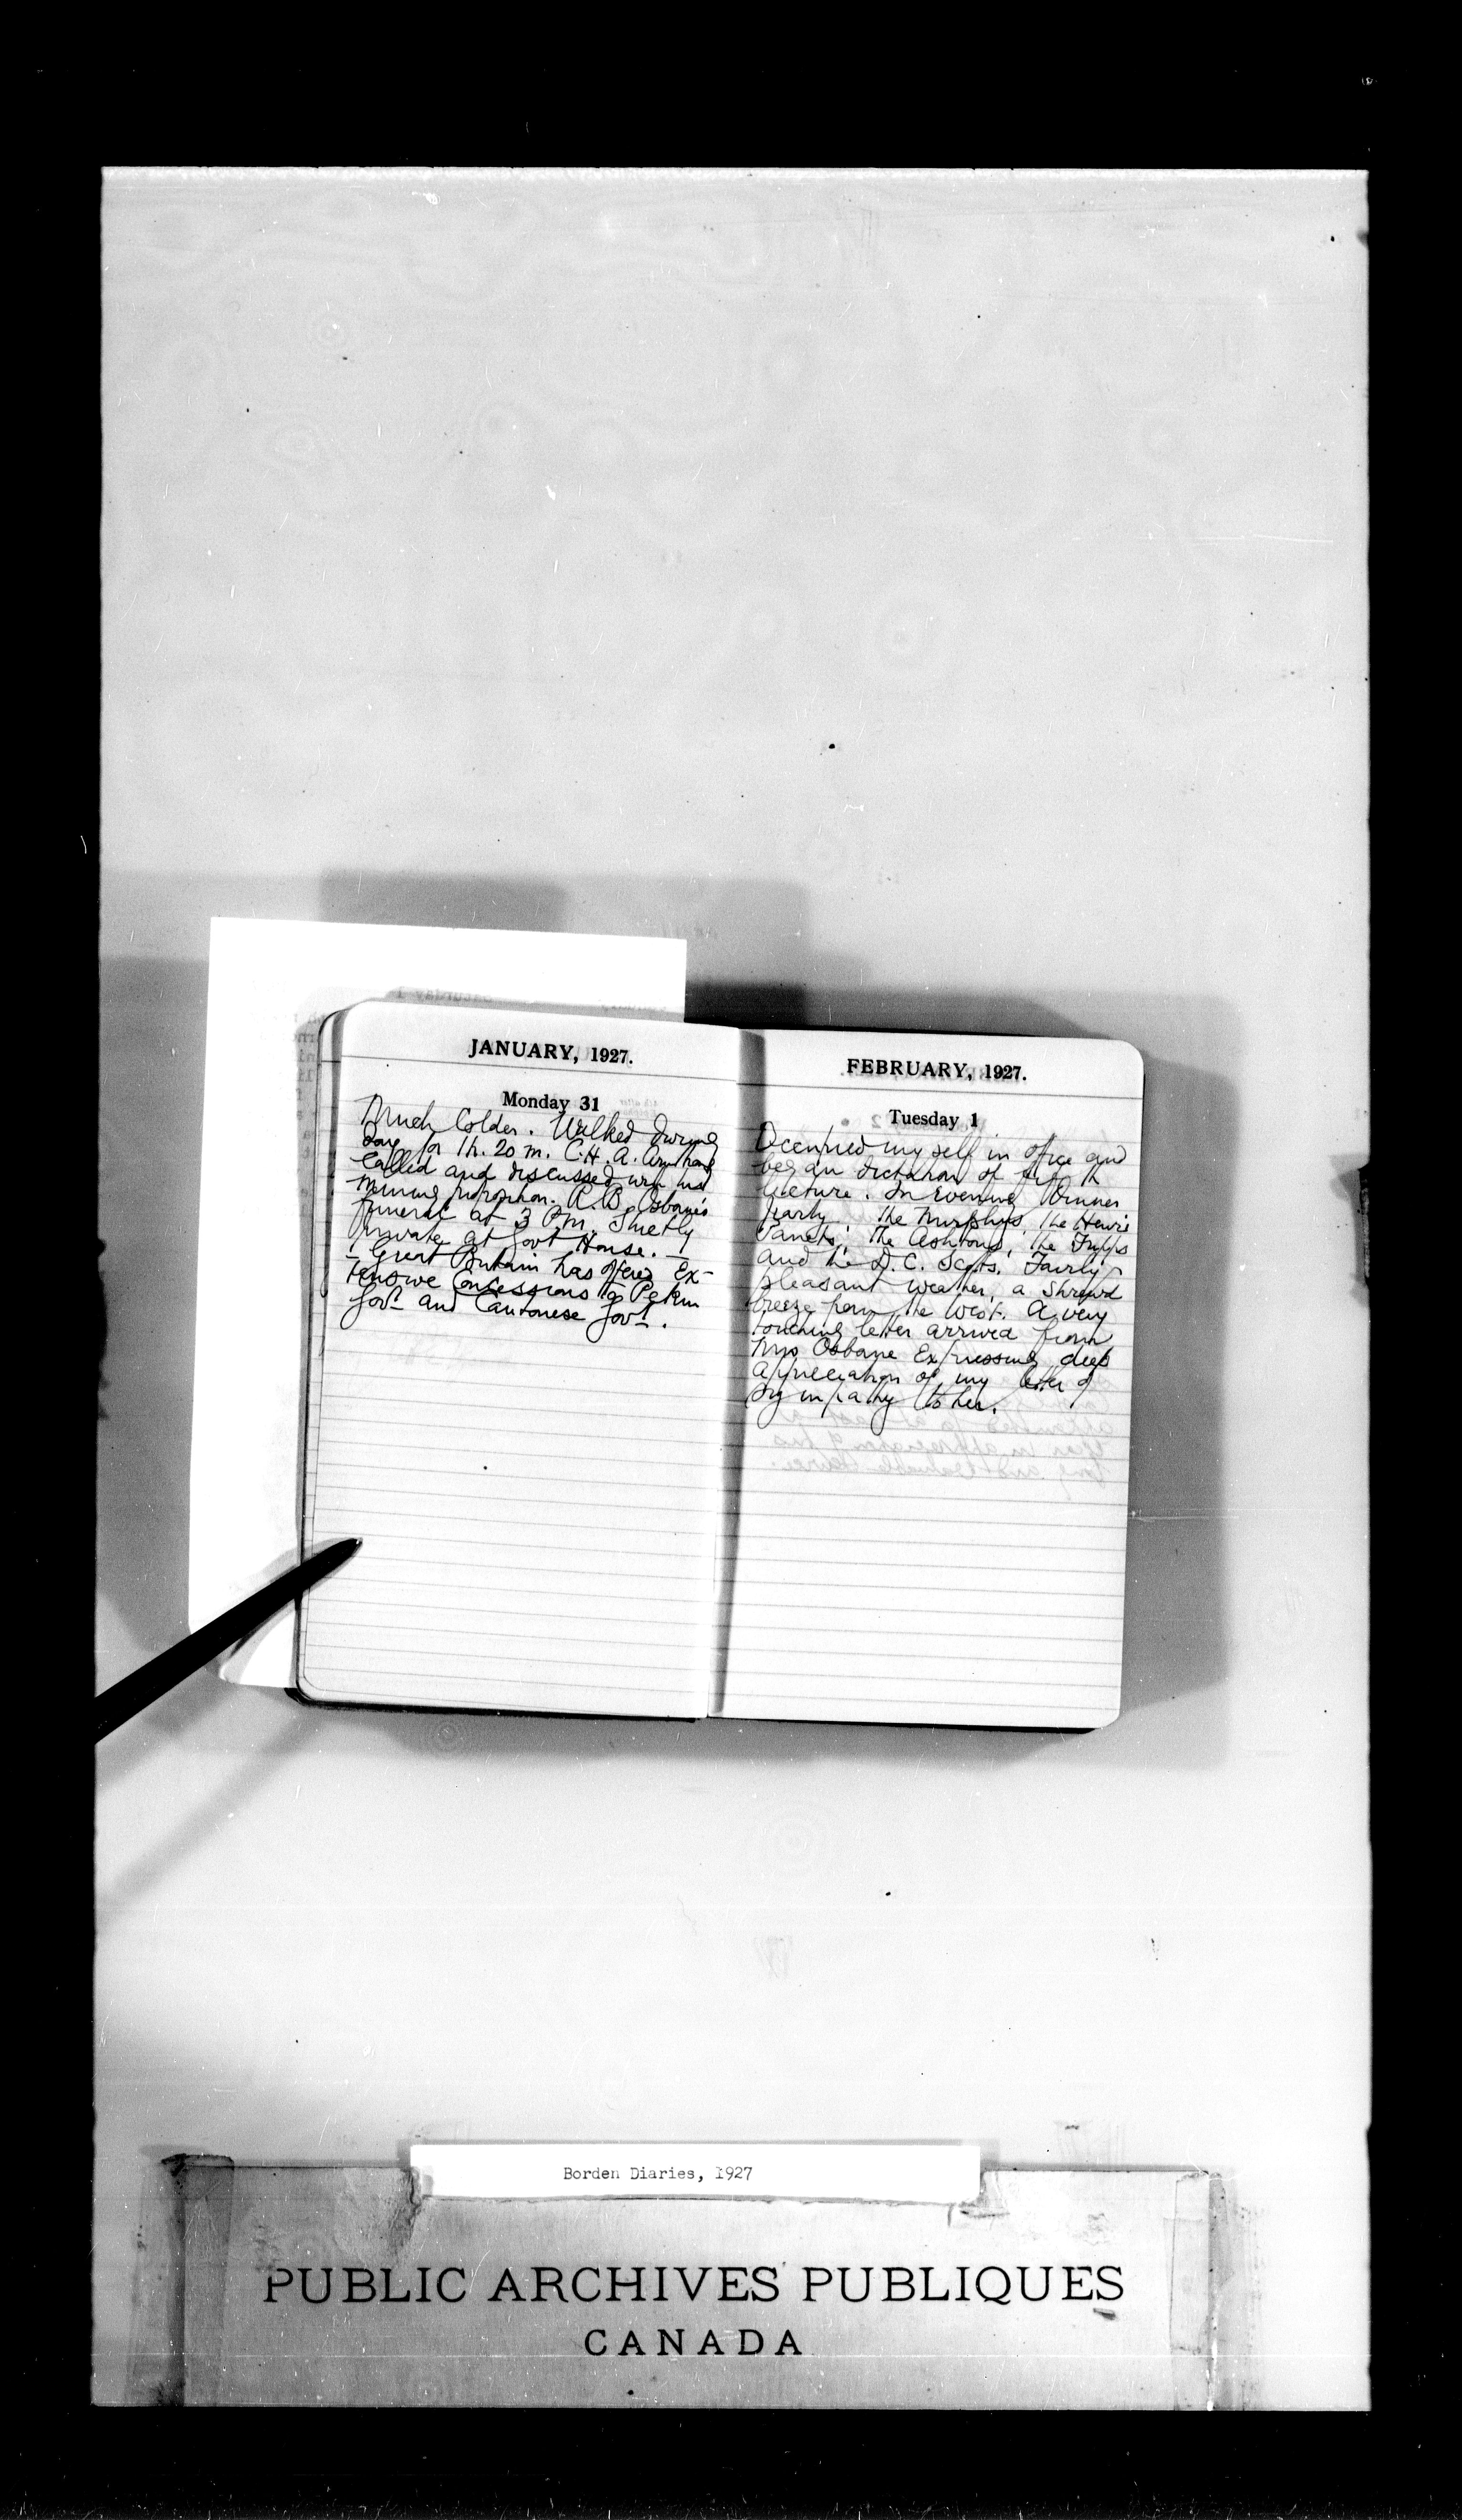 JANUARY, 1927.
Monday 31
Much Colder. Walked during
day for 1h. 20 m. C.H.A. Armstrong
called and discussed with me
mining proposition. A. B. Osborne's
funeral at 3 P.M. Strictly
private at Govt House. —
— Great Britain has offered Ex-
tensive Concessions to Pekin
Govt and Cantonese Govt.
FEBRUARY, 1927.
Tuesday 1
Occupied myself in office and
began dictation of fifth
lecture. In Evening Dinner
party; The Murphys, the Henri
Panets, The Ashtons, the Fripps
and the D. C. Scotts. Fairly
pleasant weather, a Shrewd
breeze from the West. A very
touching letter arrived from
Mrs Osborne Expressing deep
appreciation of my letter of
Sympathy to her.
Borden Diaries, 1927
PUBLIC ARCHIVES PUBLIQUES
CANADA